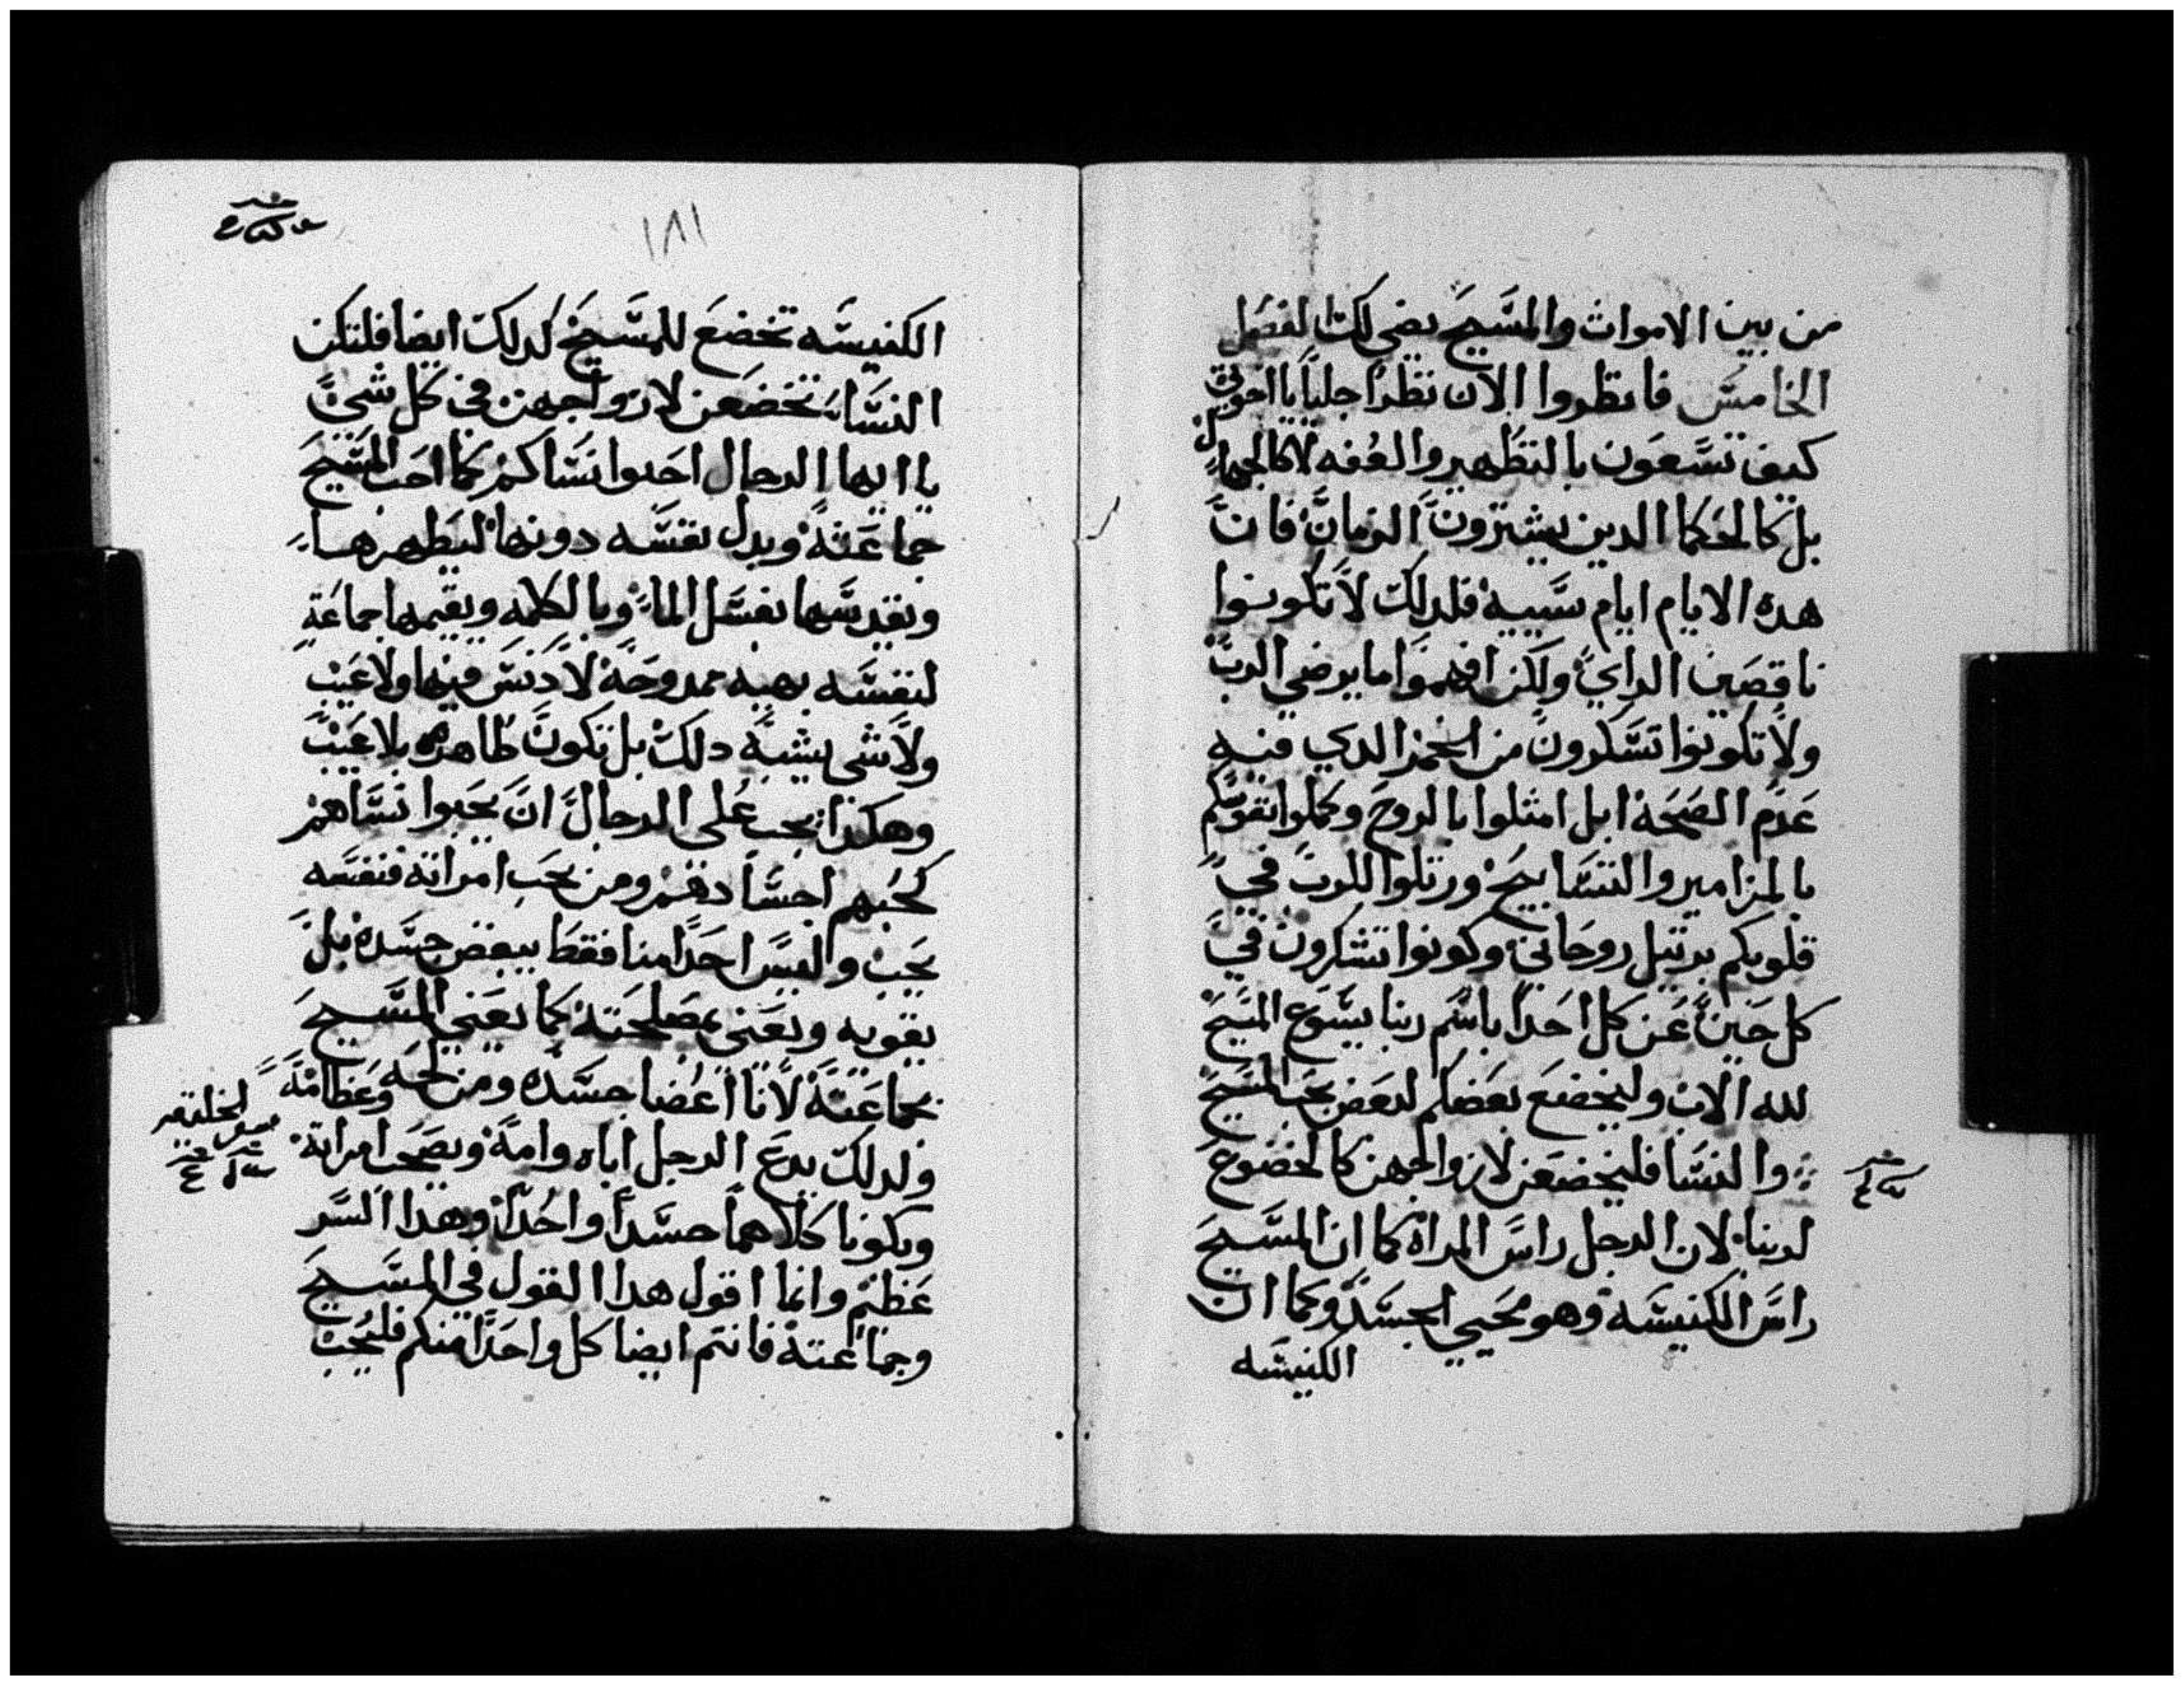 من بين الاموات والمسيح يضي لك الفصل
الخامس فانظروا الان نظرا جليا يا اخوتي
كيف تسعون بالتطهير والعفه لا كالجهال
بل كالحكما الدين يشترون الزمان فان
هده الايام ايام سييه فلدلك لا تكونوا
ناقصين الراي ولكن افهموا ما يرضي الرب
ولا تكونوا تسكرون من الخمر الدي فيه
عدم الصحة ابل امثلوا بالروح وكملوا نفوسكم
بالمزامير والتسابيح ورتلوا للرب في
قلوبكم برتيل روحاني وكونوا تشكرون في
كل حين عن كل احدا باسم ربنا يسوع المسيح
لله الاب وليخضع بعضكم لبعض بحب المسيح
والنسا فليخضعن لازواجهن كالخضوع
لربنا لان الرجل راس المراة كما ان المسيح
راس الكنيسه وهو محيي الجسد وكما ان
الكنيسه
١٨١
الكنيسه تخضع للمسيح كدلك ايضا فلتكن
النسا يخضعن لازواجهن في كل شي
يا ايها الرجال احبوا نساكم كما احب المسيح
جماعته وبدل نفسه دونها ليطهرها
ويقدسها بغسل الما وبالكلمه ويقيمها جماعة
لنفسه بهيه ممدوحة لا دنس فيها ولا عيب
ولا شي يشبه دلك بل تكون طاهره بلا عيب
وهكذا يجب على الرجال ان يحبوا نساهم
كحبهم اجسادهم ومن يحب امراته فنفسه
يحب وليس احدا منا فقط يبغض جسده بل
يقويه ويعنى بمصلحته كما يعني المسيح
بجماعته لانا اعضا جسده ومن لحمه وعظامه
ولدلك يدع الرجل اباه وامه ويصحب امراته
ويكونا كلاهما جسدا واحدا وهدا السر
عظيم وانما اقول هدا القول في المسيح
وجماعته فانتم ايضا كل واحدا منكم فليحب